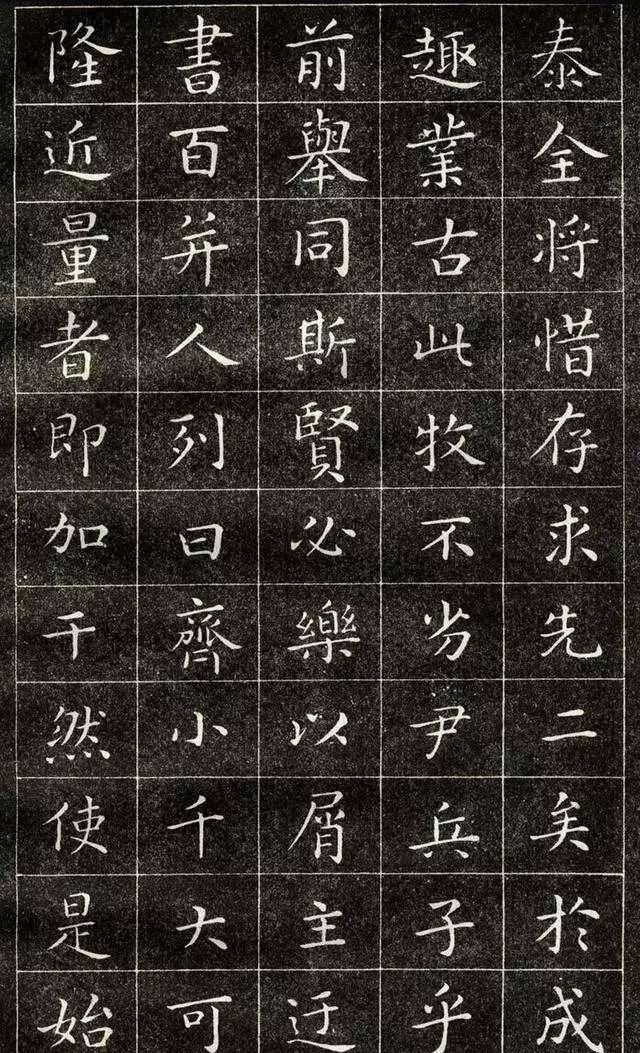 泰全将惜存求先二矣於成
趣業古此牧不劣尹兵子乎
前舉同斯賢必樂以屑主迂
書百并人列曰齊小千大可
隆近量者即加干然使是始